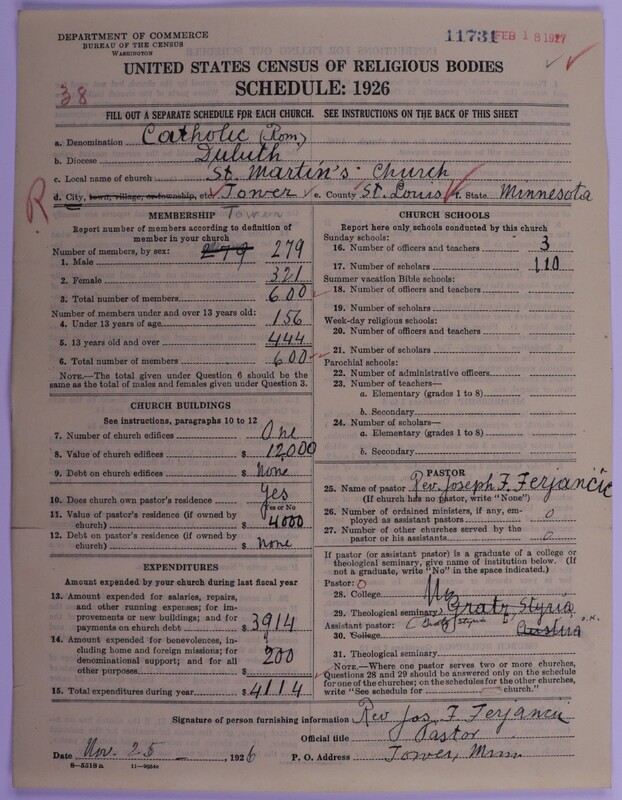 DEPARTMENT OF COMMERCE
BUREAU OF THE CENSUS
WASHINGTON
11731 FEB 18 1927
UNITED STATES CENSUS OF RELIGIOUS BODIES
SCHEDULE: 1926
38
FILL OUT A SEPARATE SCHEDULE FOR EACH CHURCH. SEE INSTRUCTIONS ON THE BACK OF THIS SHEET
a. Denomination Catholic (Rom)
b. Diocese Duluth
c. Local name of church St. Martin's Church
R
d. City, town, village, or township, etc. Tower e. County St. Louis f. State Minnesota
Town
MEMBERSHIP
Report number of members according to definition of member in your church
Number of members, by sex: 279
1. Male 279
2. Female 321
3. Total number of members 600
Number of members under and over 13 years old:
4. Under 13 years of age 156
5. 13 years old and over 444
6. Total number of members 600
NOTE.—The total given under Question 6 should be the same as the total of males and females given under Question 3.
CHURCH BUILDINGS
See instructions, paragraphs 10 to 12
7. Number of church edifices One
8. Value of church edifices $ 12000
9. Debt on church edifices $ None
10. Does church own pastor's residence Yes
Yes or No
11. Value of pastor's residence (if owned by church) $ 4000
12. Debt on pastor's residence (if owned by church) $ None
EXPENDITURES
Amount expended by your church during last fiscal year
13. Amount expended for salaries, repairs, and other running expenses; for improvements or new buildings; and for payments on church debt $ 3914
14. Amount expended for benevolences, including home and foreign missions; for denominational support; and for all other purposes $ 200
15. Total expenditures during year $ 4114
CHURCH SCHOOLS
Report here only schools conducted by this church
Sunday schools:
16. Number of officers and teachers 3
17. Number of scholars 110
Summer vacation Bible schools:
18. Number of officers and teachers
19. Number of scholars
Week-day religious schools:
20. Number of officers and teachers
21. Number of scholars
Parochial schools:
22. Number of administrative officers
23. Number of teachers—
a. Elementary (grades 1 to 8)
b. Secondary
24. Number of scholars—
a. Elementary (grades 1 to 8)
b. Secondary
PASTOR
25. Name of pastor Rev. Joseph F. Ferjančič
(If church has no pastor, write "None")
26. Number of ordained ministers, if any, employed as assistant pastors 0
27. Number of other churches served by the pastor or his assistants 0
If pastor (or assistant pastor) is a graduate of a college or theological seminary, give name of institution below. (If not a graduate, write "No" in the space indicated.)
Pastor:
28. College No
29. Theological seminary Gratz, Styria
Assistant pastor: (Gratz, Styria
30. College Austria
31. Theological seminary
NOTE.—Where one pastor serves two or more churches, Questions 28 and 29 should be answered only on the schedule for one of the churches; on the schedules for the other churches, write "See schedule for church."
Signature of person furnishing information Rev Jos. F Ferjancic
Official title Pastor
Date Nov. 25, 1926 P. O. Address Tower, Minn
8—5518a